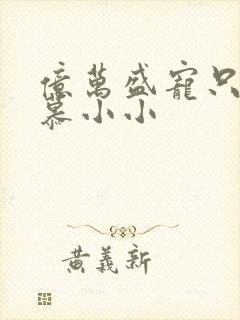 億萬盛寵只
慕小小
黃義新